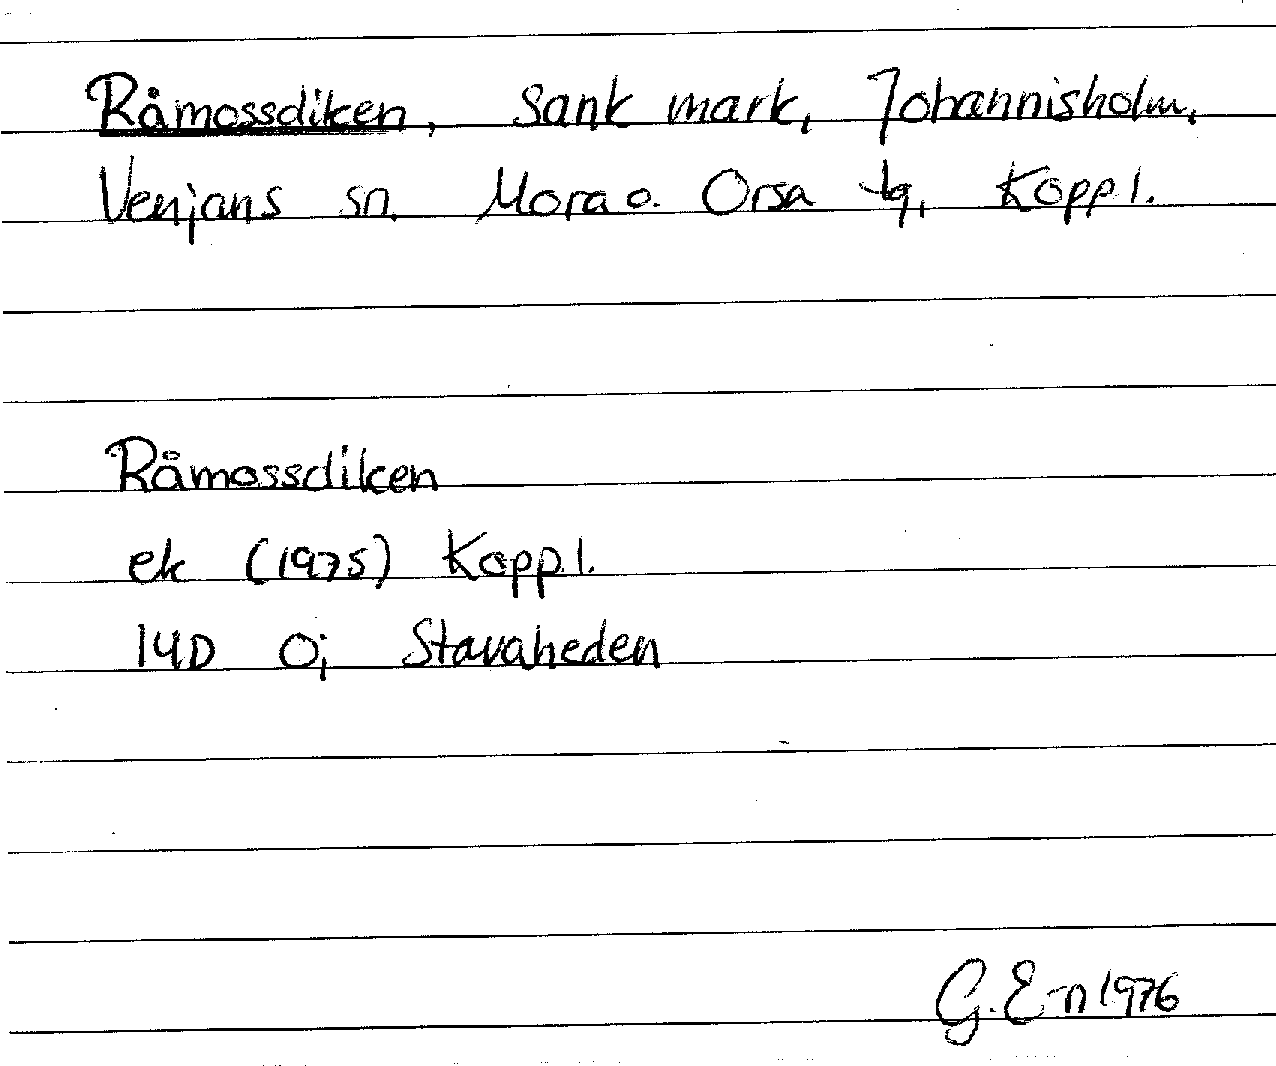 Råmossdiken, Sank mark, Johannisholm,
Venjans sn. Mora o. Orsa tg, Kopp l.
Råmossdiken
ek (1975) Kopp.l.
14D 0j Stavaheden
G. E-n 1976